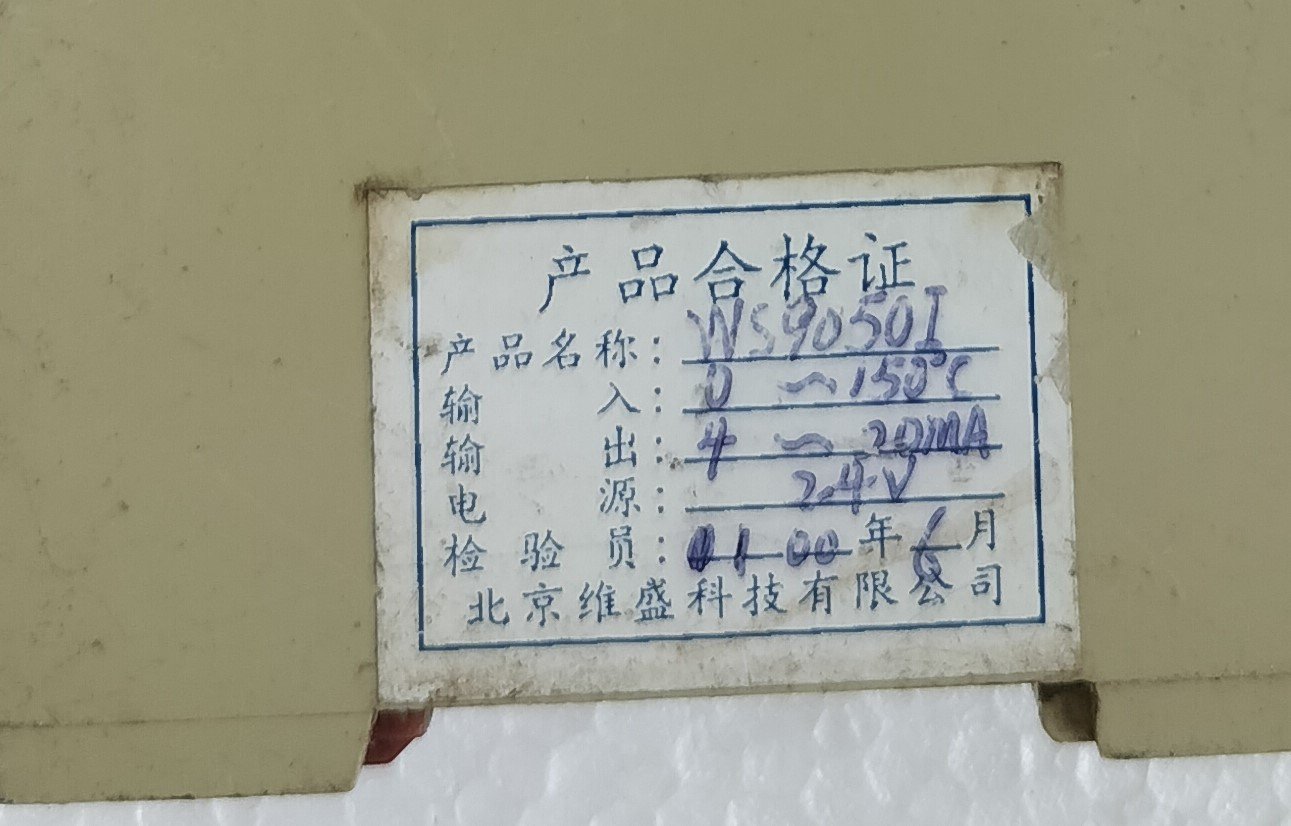 产品合格证
产品名称：WS9050I
输入：0～150℃
输出：4～20mA
电源：24V
检验员：11 00年6月
北京维盛科技有限公司